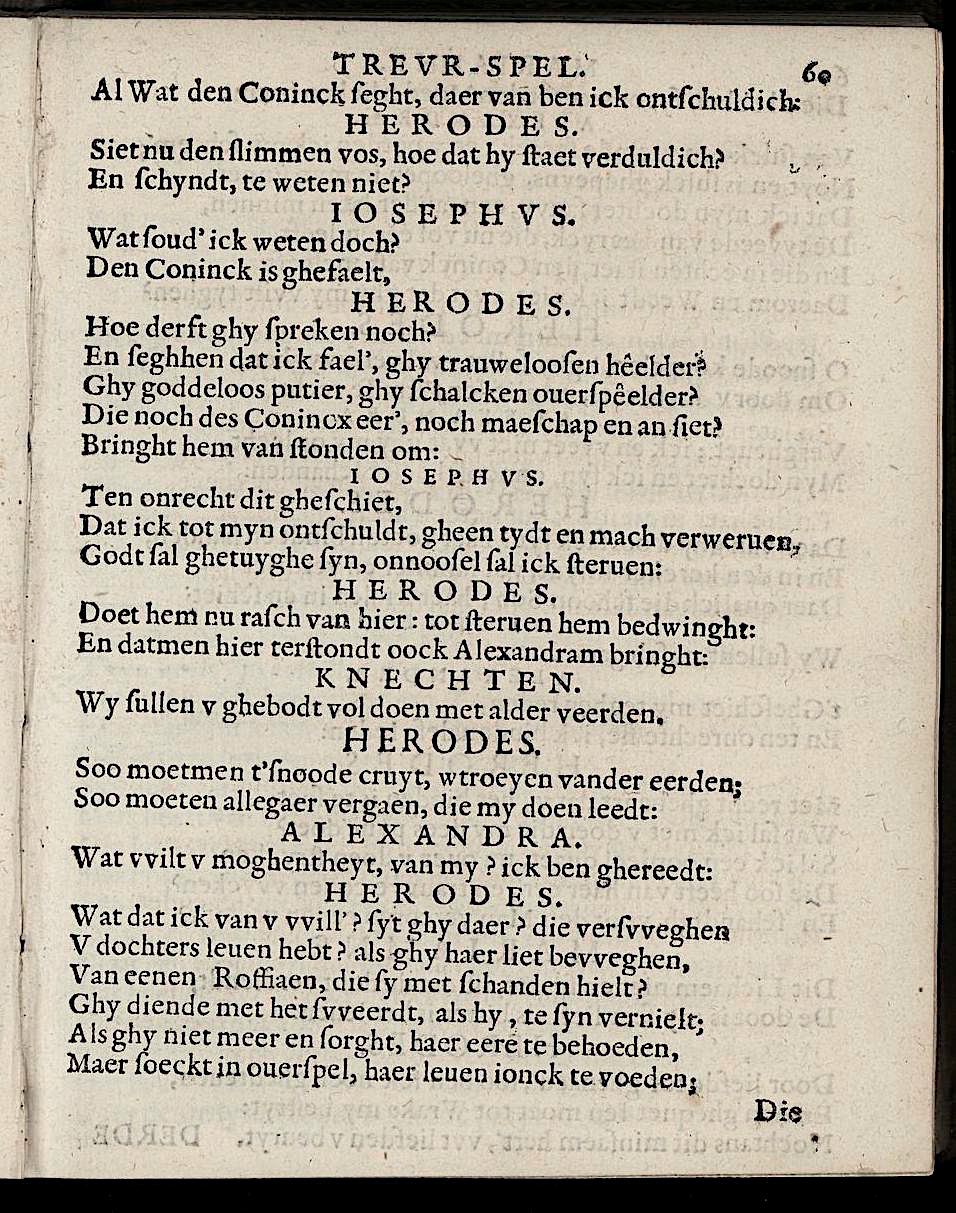 TREVR-SPEL. 60
Al Wat den Coninck ſeght, daer van ben ick ontſchuldich:
HERODES.
Siet nu den ſlimmen vos, hoe dat hy ſtaet verduldich?
En ſchyndt, te weten niet?
IOSEPHVS.
Wat ſoud' ick weten doch?
Den Coninck is ghefaelt,
HERODES.
Hoe derft ghy ſpreken noch?
En ſeghhen dat ick fael', ghy trauwelooſen hêelder?
Ghy goddeloos putier, ghy ſchalcken ouerſpêelder?
Die noch des Conincx eer', noch maeſchap en an ſiet?
Bringht hem van ſtonden om:
IOSEPHVS.
Ten onrecht dit gheſchiet,
Dat ick tot myn ontſchuldt, gheen tydt en mach verweruen,
Godt ſal ghetuyghe ſyn, onnooſel ſal ick ſteruen:
HERODES.
Doet hem nu raſch van hier: tot ſteruen hem bedwinght:
En datmen hier terſtondt oock Alexandram bringht:
KNECHTEN.
Wy ſullen v ghebodt vol doen met alder veerden.
HERODES.
Soo moetmen t'ſnoode cruyt, wtroeyen vander eerden;
Soo moeten allegaer vergaen, die my doen leedt:
ALEXANDRA.
Wat vvilt v moghentheyt, van my ? ick ben ghereedt:
HERODES.
Wat dat ick van v vvill' ? ſyt ghy daer ? die verſvveghen
V dochters leuen hebt ? als ghy haer liet bevveghen,
Van eenen Roffiaen, die ſy met ſchanden hielt?
Ghy diende met het ſvveerdt, als hy , te ſyn vernielt;
Als ghy niet meer en ſorght, haer eere te behoeden,
Maer ſoeckt in ouerſpel, haer leuen ionck te voeden;
Die